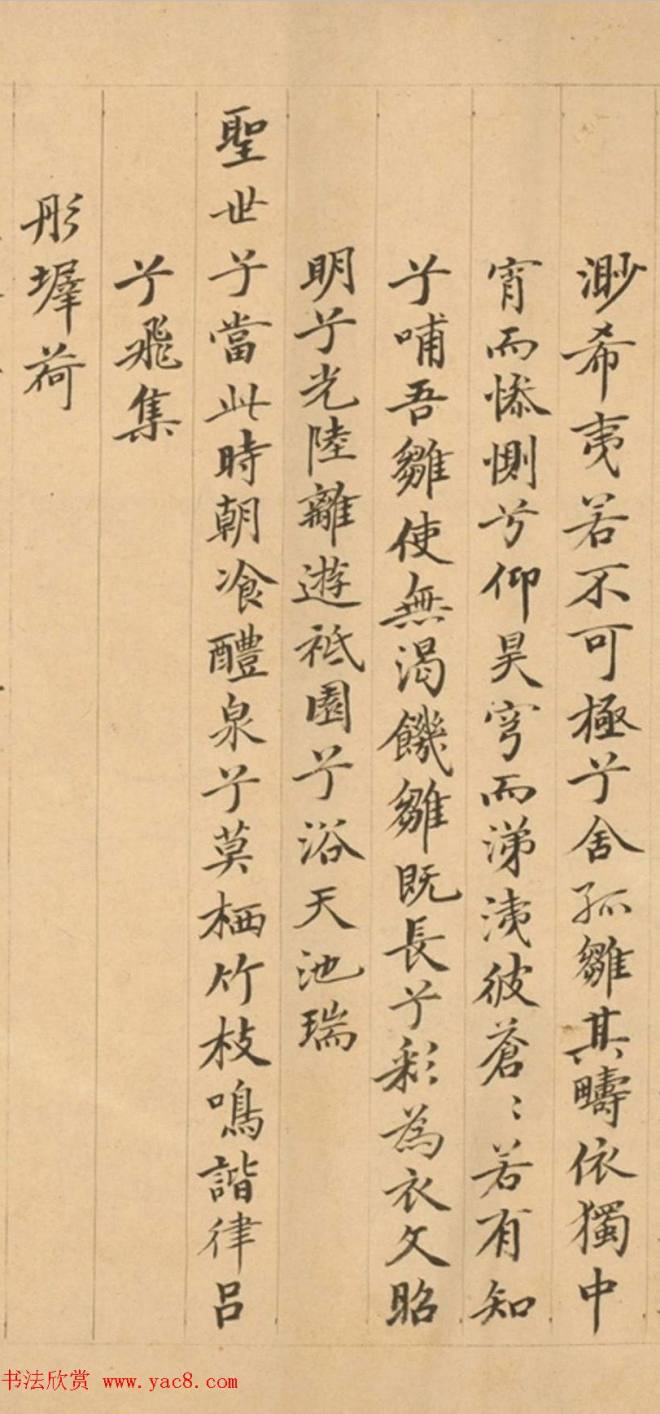 渺希夷若不可極兮舍孤雛其疇依獨中
宵而惨惻兮仰昊穹而涕洟彼蒼〻若有知
兮哺吾雛使無渴饑雛既長兮彩為衣文昭
明兮光陸離遊祗園兮浴天池瑞
聖世兮當此時朝飡醴泉兮莫栖竹枝鳴諧律呂
兮飛集
彤墀荷
书法欣赏 www.yac8.com